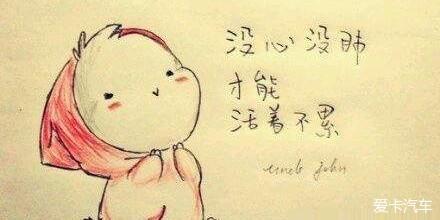 没心没肺
才能
活着不累
uncle john
爱卡汽车